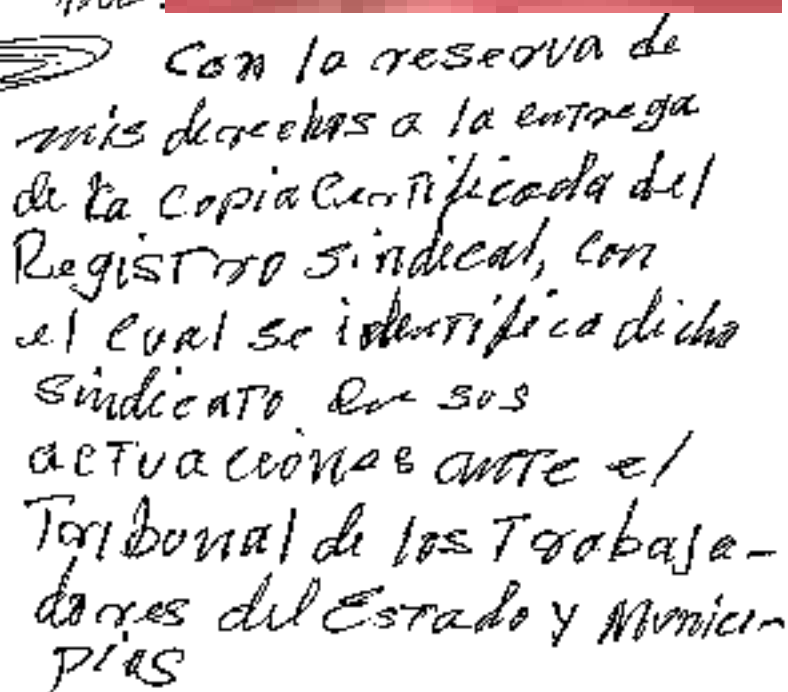 Con la reserva de
mis derechos a la entrega
de la Copia Certificada del
Registro Sindical, con
el cual se identifica dicho
Sindicato en sus
actuaciones ante el
Tribunal de los Trabaja-
dores del Estado y Munici-
pios